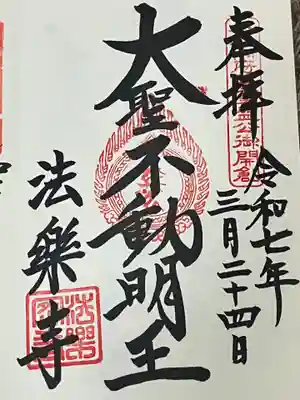 奉拝
令和七年
三月二十四日
大聖不動明王
法樂寺